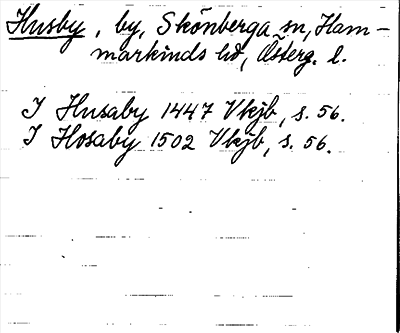 Husby, by, Skönberga sn, Ham-
markinds hd, Österg. l.
I Husaby 1447 Vkjb, s. 56.
I Hosaby 1502 Vkjb, s. 56.